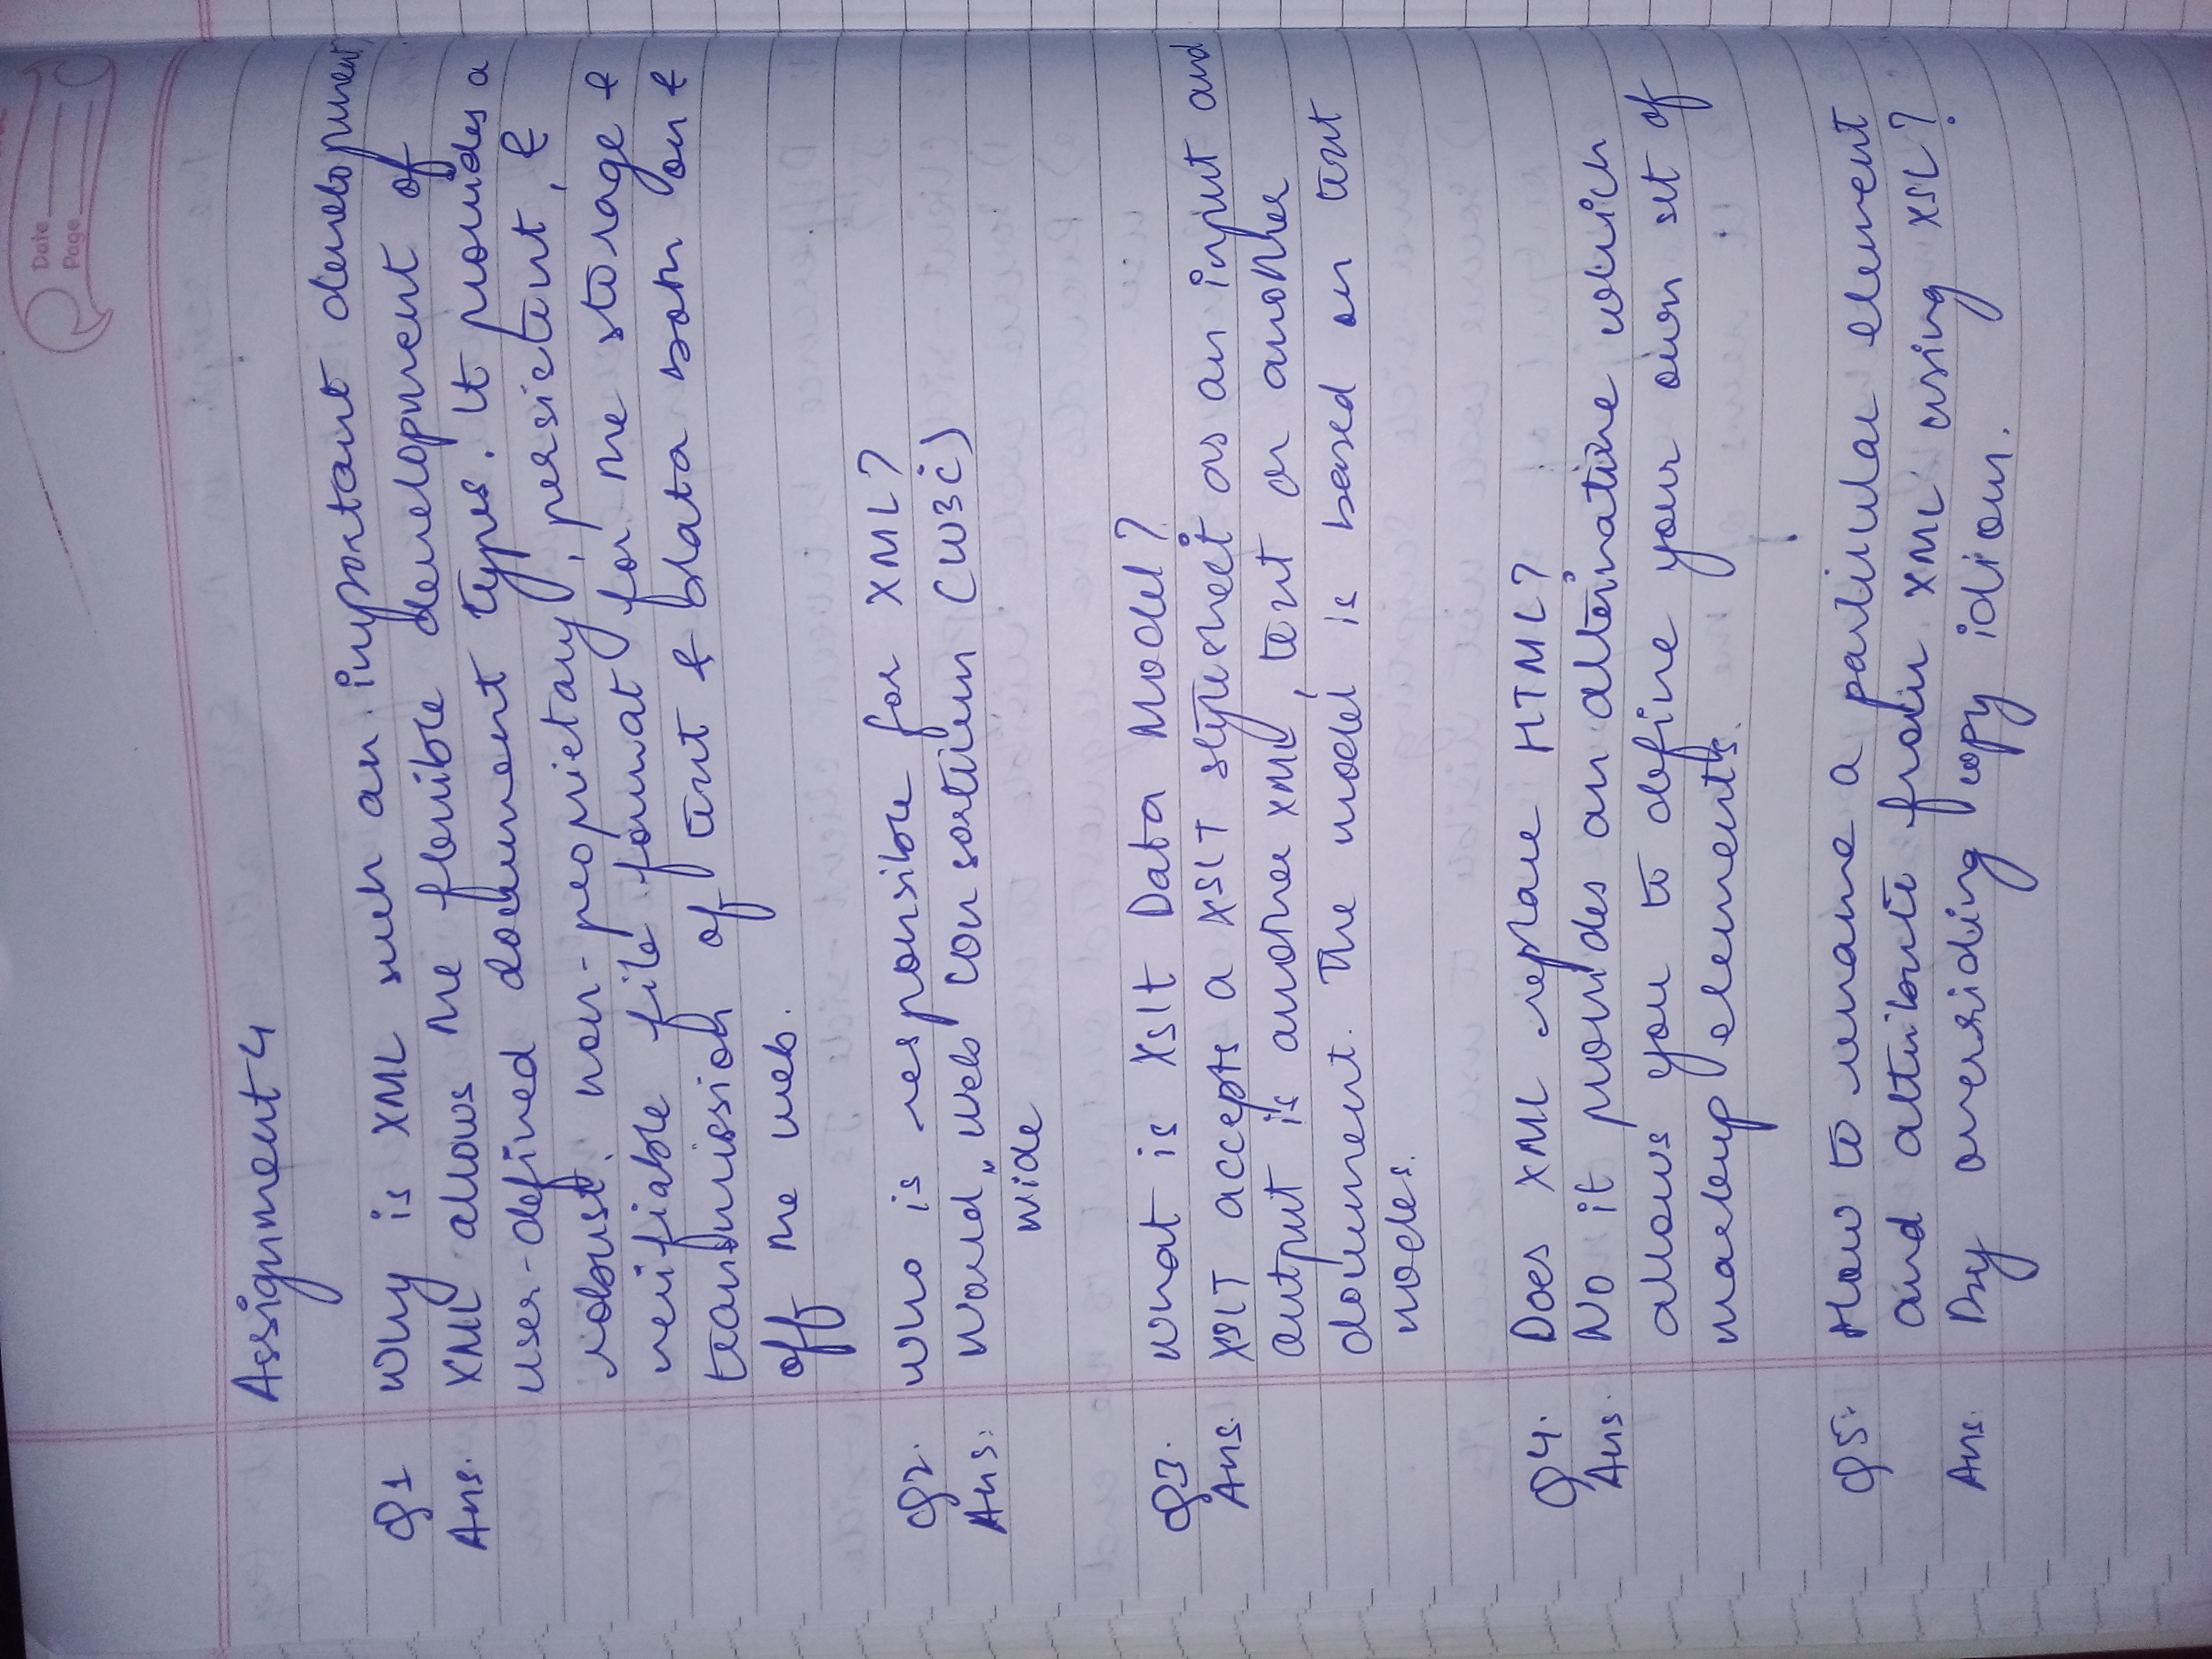 Date
Page
Assignment 4
Q1 Why is XML such an important development,
Ans. XML allows the flexible development of
user-defined document types. It provides a
robust, non-proprietary, persistent, &
verifiable file format for the storage &
transmission of text & data both on &
off the web.
Q2. Who is responsible for XML?
Ans: World wide Web Consortium (W3C)
Q3. What is Xslt Data Model?
Ans. XSLT accepts a XSLT stylesheet as an input and
output is another XML, text or another
document. The model is based on text
nodes.
Q4. Does XML replace HTML?
Ans. No it provides an alternative which
allows you to define your own set of
markup elements.
Q5. How to rename a particular element
and attribute from XML using XSL?
Ans. By overriding copy idiom.